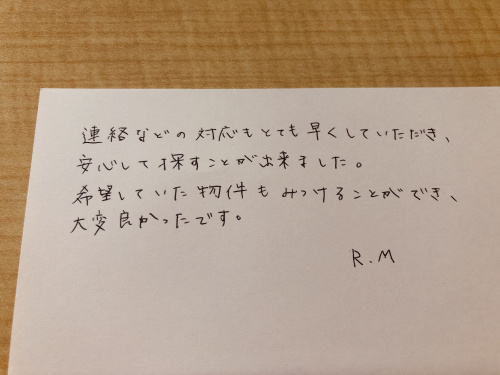 連絡などの対応もとても早くしていただき、
安心して探すことが出来ました。
希望していた物件もみつけることができ、
大変良かったです。
R.M